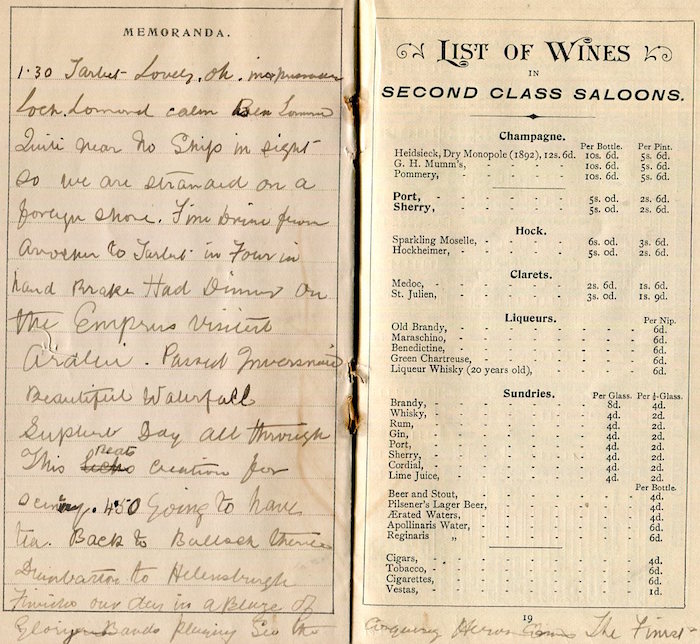 MEMORANDA.
1.30 Tarbet Lovely. Oh.
Loch Lomond calm Ben Lomond
Quite near No Ships in sight
so we are stranded on a
foreign shore. Fine Drive from
Arrocher to Tarbet in Four in
hand Brake Had Dinner on
the Empress Visited
Ardlui Passed Inversnaid
Beautiful Waterfall
Superb Day all through
This Beats creation for
scenery. 4.50 Going to have
tea. Back to Balloch thence
Dumbarton to Helensburgh
Finish our day in a Blaze of
Glory Bands playing See the
LIST OF WINES
IN
SECOND CLASS SALOONS.
Champagne.
Per Bottle. Per Pint.
Heidsieck, Dry Monopole (1892), 12s. 6d. 10s. 6d. 5s. 6d.
G. H. Mumm's, - - - - 10s. 6d. 5s. 6d.
Pommery, - - - - - 10s. 6d. 5s. 6d.
Port, - - - - - 5s. 0d. 2s. 6d.
Sherry, - - - - - 5s. 0d. 2s. 6d.
Hock.
Sparkling Moselle, - - - - 6s. 0d. 3s. 6d.
Hockheimer, - - - - - 5s. 0d. 2s. 6d.
Clarets.
Medoc, - - - - - 2s. 6d. 1s. 6d.
St. Julien, - - - - - 3s. 0d. 1s. 9d.
Liqueurs.
Per Nip.
Old Brandy, - - - - - 6d.
Maraschino, - - - - - 6d.
Benedictine, - - - - - 6d.
Green Chartreuse, - - - - - 6d.
Liqueur Whisky (20 years old), - - - - 6d.
Sundries.
Per Glass. Per ½-Glass.
Brandy, - - - - - 8d. 4d.
Whisky, - - - - - 4d. 2d.
Rum, - - - - - 4d. 2d.
Gin, - - - - - 4d. 2d.
Port, - - - - - 4d. 2d.
Sherry, - - - - - 4d. 2d.
Cordial, - - - - - 4d. 2d.
Lime Juice, - - - - - 4d. 2d.
Per Bottle.
Beer and Stout, - - - - - 4d.
Pilsener's Lager Beer, - - - - - 4d.
Ærated Waters, - - - - - 4d.
Apollinaris Water, - - - - - 6d.
Reginaris „ - - - - - 6d.
Cigars, - - - - - 4d.
Tobacco, - - - - - 6d.
Cigarettes, - - - - - 6d.
Vestas, - - - - - 1d.
19
Conquering Heros The Final